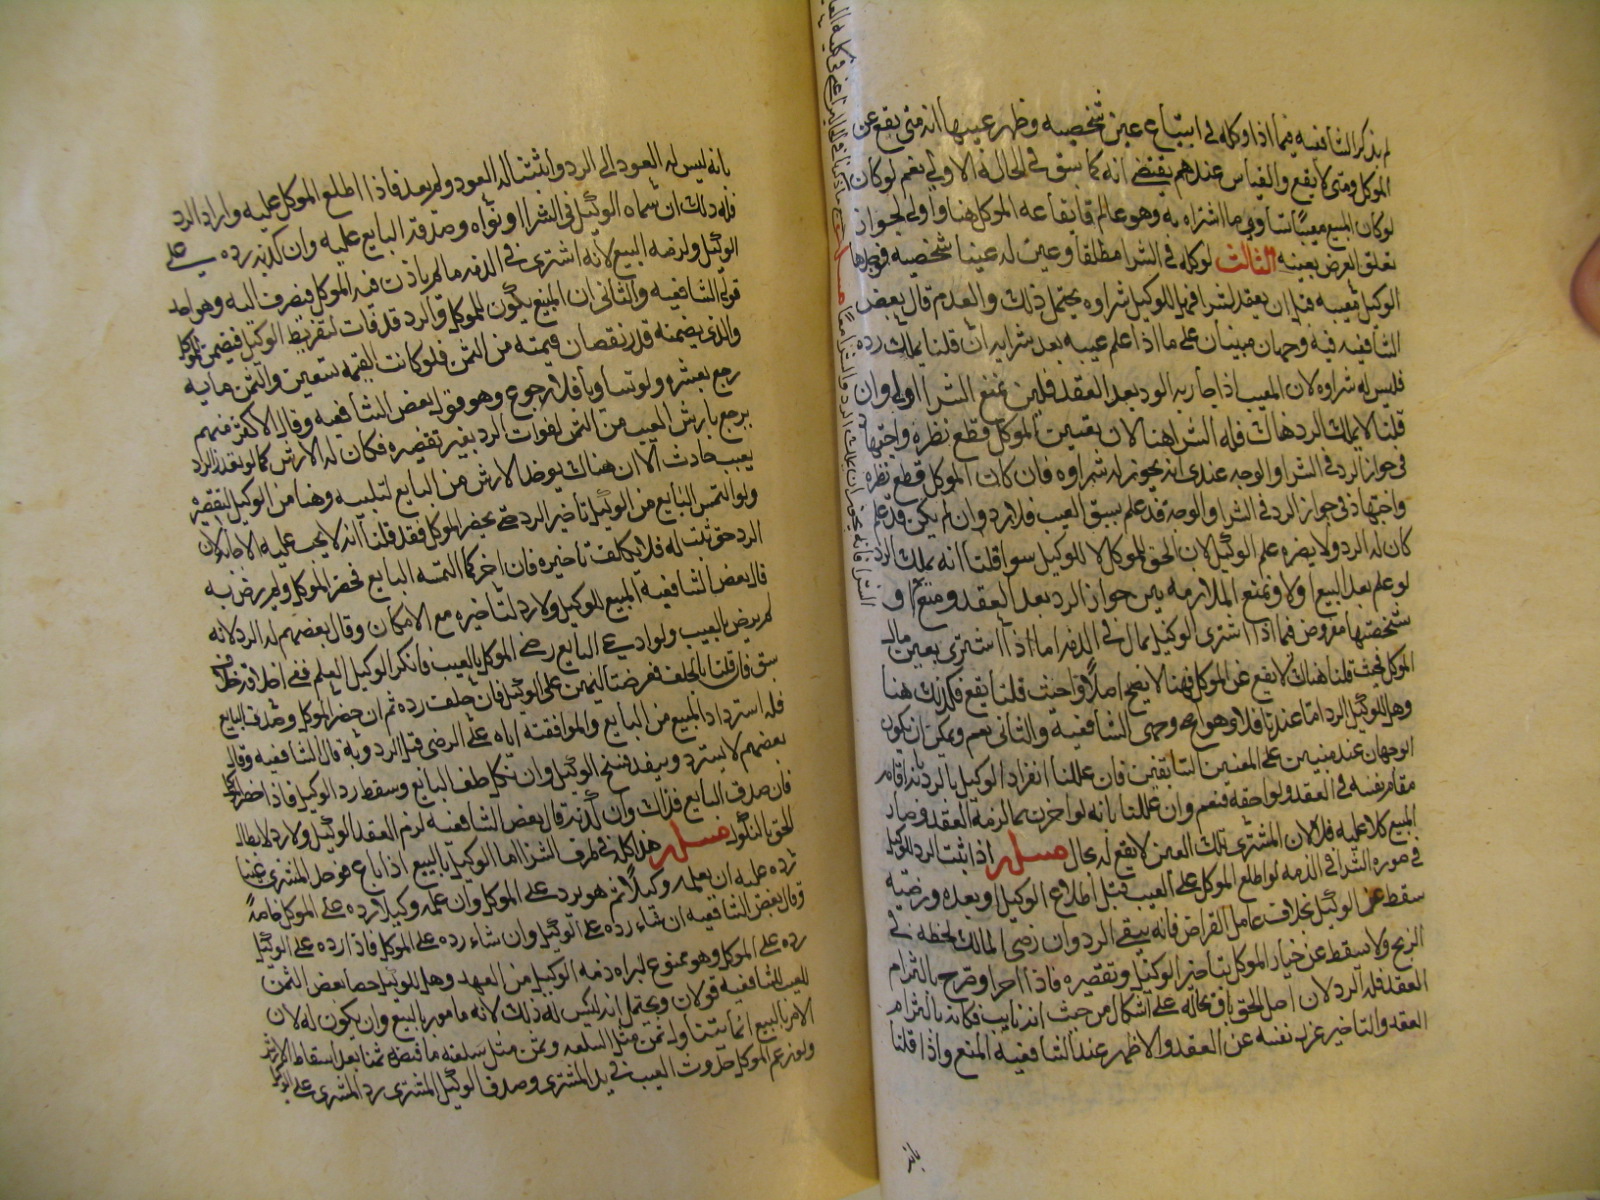 لم يذكر الشافعية فيما اذا وكله في ابتياع عين شخصية وظهر عيبها انه متى يقع عن
الموكل ومتى لا يقع والقياس عندهم يقتضي انه كما سبق في الحالة الاولى نعم لو كان
لو كان المبيع معيبا يساوي ما اشتراه به وهو عالم فايقاعه عن الموكل هنا اولى لجواز
تعلق الغرض بعينه الثالث لو وكله في الشرا مطلقا وعين له عينا شخصية فوجدها
الوكيل معيبة قبل ان يعقد الشرا فهل للوكيل شراوه يحتمل ذلك والعدم قال بعض
الشافعية فيه وجهان مبنيان على ما اذا علم عيبه بعد شرايه ان قلنا يملك رده
فليس له شراوه لان العيب اذا جاز به الرد بعد العقد فلان يمنع الشرا اولى وان
قلنا لا يملك الرد هناك فله الشرا هنا لان بتعيين الموكل قطع نظره واجتهاده
في جواز الرد في الشرا والوجه عندي انه يجوز له شراوه فان كان الموكل قطع نظره
واجتهاده في جواز الرد في الشرا والوجه قد علم بسبق العيب فلا رد وان لم يكن قد علم
كان له الرد ولا يضره علم الوكيل لان الحق للموكل لا للوكيل سوا قلنا انه يملك الرد
لو علم بعد البيع او لا ونمنع الملازمة بين جواز الرد بعد العقد ومنع الشرا
شخصتها مفروض فيما اذا اشترى الوكيل بمال في الذمة اما اذا اشترى بعين مال
الموكل فحيث قلنا هناك لا يقع عن الموكل فهنا لا يصح اصلا وحيث قلنا يقع فكذلك هنا
وهل للوكيل الرد اما عندنا فلا وهو اصح وجهي الشافعية والثاني نعم ويمكن ان يكون
الوجهان عندهم مبنيين على المعنيين السابقين فان عللنا انفراد الوكيل بالرد بانه اقام
مقام نفسه في العقد ولواحقه فنعم وان عللنا بانه لو اخر ربما لزمه العقد وصار
المبيع كلا عليه فلا لان المشترى بتلك العين لا يقع له بحال مسله اذا ثبت الرد للوكيل
في صورة الشرا في الذمة لو اطلع الموكل على العيب قبل اطلاع الوكيل او بعده ورضيه
سقط عن الوكيل بخلاف عامل القراض فانه يبقى الرد وان رضي المالك لحظه في
الربح ولا يسقط عن خيار الموكل بتاخير الوكيل وتقصيره فاذا اخر او صرح بالتزام
العقد فله الرد لان اصل الحق باق بحاله على اشكال من حيث انه نايب فكانه بالتزام
العقد والتاخير عزل نفسه عن العقد والاظهر عند الشافعية المنع واذا قلنا
بانه
بانه ليس له العود الى الرد واثبتنا له العود ولم يعد فاذا اطلع الموكل عليه واراد الرد
فله ذلك ان سماه الوكيل في الشرا او نواه وصدقه البايع عليه وان كذبه رده على
الوكيل ولزمه البيع لانه اشترى في الذمة ما لم ياذن فيه الموكل فينصرف اليه وهو احد
قولي الشافعية والثاني ان المبيع يكون للموكل والرد قد فات لتفريط الوكيل فيضمن للموكل
والذي يضمنه قدر نقصان قيمته من الثمن فلو كانت القيمة تسعين والثمن ماية
رجع بعشرة ولو تساويا فلا رجوع وهو قول بعض الشافعية وقال الاكثر منهم
يرجع بارش العيب من الثمن لفوات الرد بغير تقصيره فكان له الارش كما لو تعذر الرد
بعيب حادث الا ان هناك يوخذ الارش من البايع لتلبيسه وهنا من الوكيل لتقصيره
ولو التمس البايع من الوكيل تاخير الرد حتى يحضر الموكل فقد قلنا انه لا يجب عليه الاجابة لان
الرد حق ثبت له فلا يكلف تاخيره فان اخر كما التمسه البايع فحضر الموكل ولم يرض به
قال بعض الشافعية المبيع للوكيل ولا رد لتاخيره مع الامكان وقال بعضهم له الرد لانه
لم يرض بالعيب ولو ادعى البايع رضى الموكل بالعيب فانكر الوكيل العلم ففي احلافه خلاف
سبق فان قلنا بالحلف فعرضنا اليمين على الوكيل فان حلف رده ثم ان حضر الموكل وصدق البايع
فله استرداد المبيع من البايع ولموافقته اياه على الرضى قبل الرد وبه قال الشافعية وقال
بعضهم لا يسترد وينفذ فسخ الوكيل وان نكل حلف البايع وسقط رد الوكيل فاذا حضر الموكل
فان صدق البايع فذاك وان كذبه قال بعض الشافعية لزم العقد الوكيل ولا رد لابطال
الحق بالنكول مسله هذا كله في طرف الشرا اما الوكيل بالبيع اذا باع فوجد المشتري عيبا
رده عليه ان لم يعلمه وكيلا ثم هو يرد على الموكل وان علمه وكيلا رده على الموكل خاصة
وقال بعض الشافعية ان شاء رده على الوكيل وان شاء رده على الموكل فاذا رده على الوكيل
رده على الموكل وهو ممنوع لبراه ذمة الوكيل من العهدة وهل للوكيل حط بعض الثمن
للعيب للشافعية قولان ويحتمل انه ليس له ذلك لانه مامور بالبيع وان يكون له لان
الامر بالبيع انما يتناوله بثمن مثل السلعة وثمن مثل سلعته ما قبضه ثمنا بعد اسقاط الارش
ولو زعم الموكل حدوث العيب في يد المشتري وصدق الوكيل المشتري رد المشتري على الوكيل